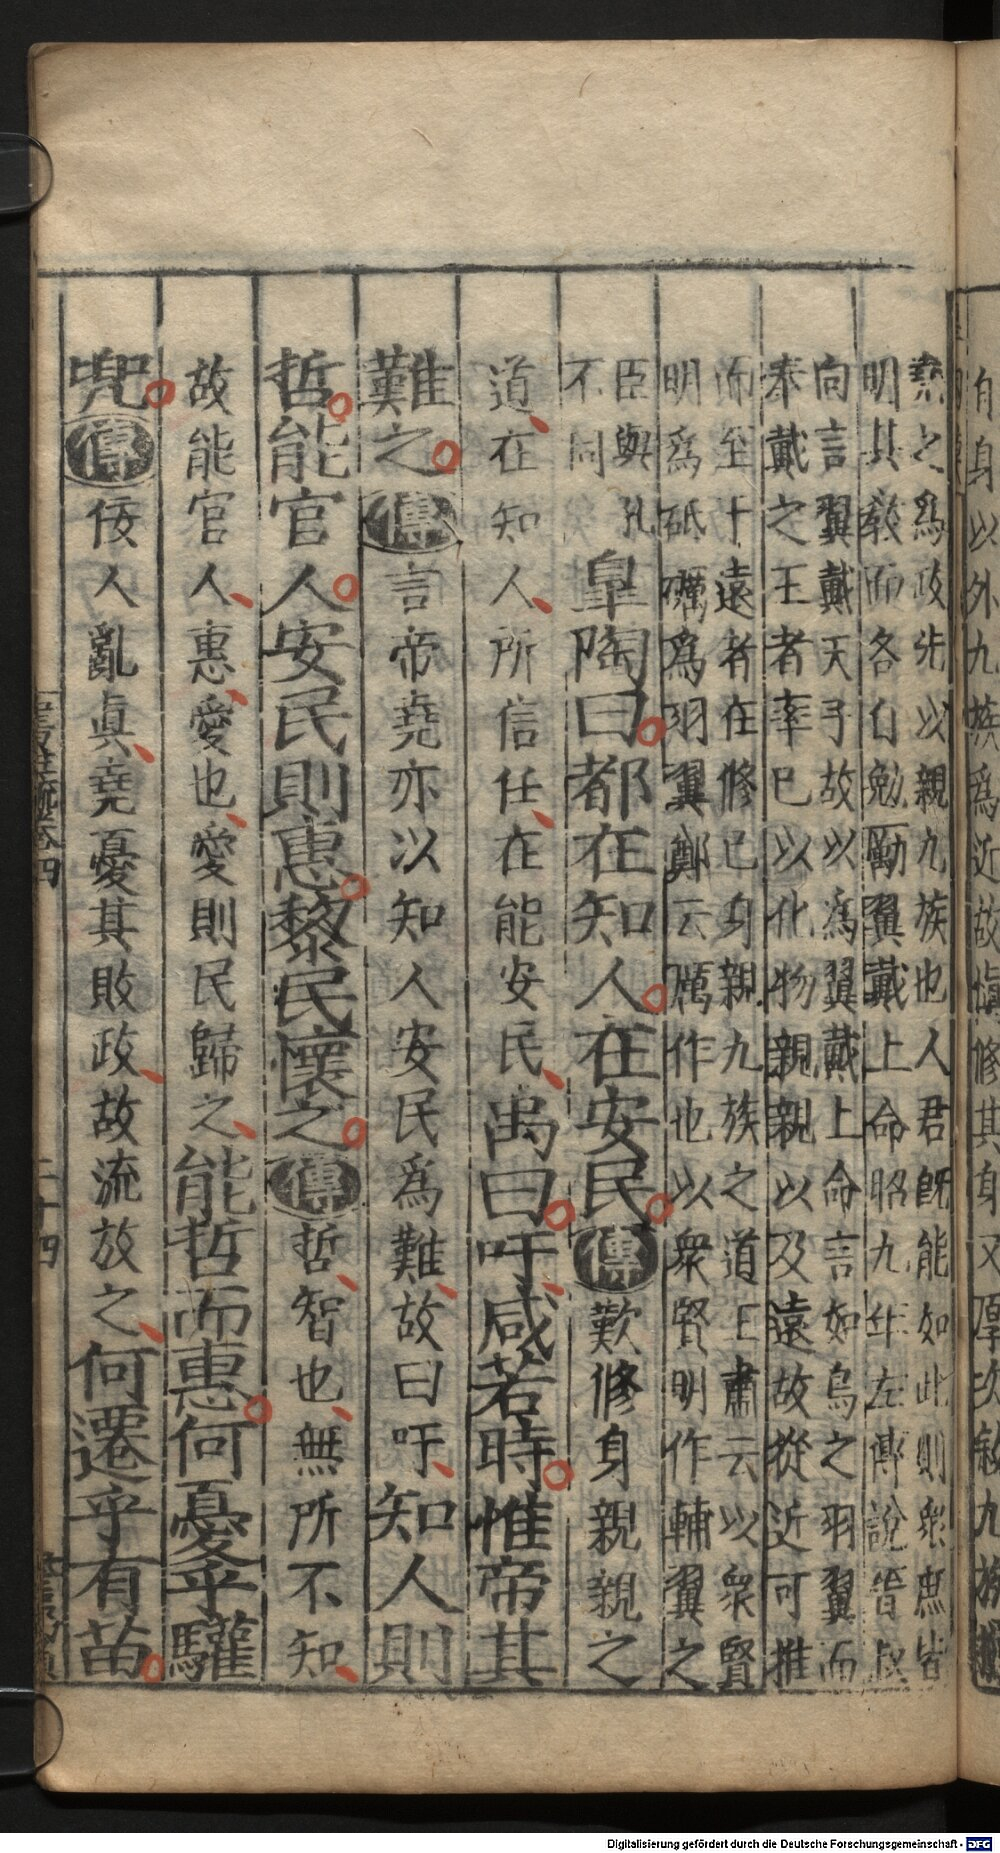 自身以外九族爲近故愼修其身又厚次敘九族
堯之爲政先以親九族也人君旣能如此則衆庶皆
明其敎而各自勉勵翼戴上命昭九年左傳說晉叔
向言翼戴天子故以爲翼戴上命言如鳥之羽翼而
奉戴之王者率已以化物親親以及遠故從近可推
而至于遠者在修已身親九族之道王肅云以衆賢
明爲砥礪爲羽翼鄭云厲作也以衆賢明作輔翼之
臣與孔
不同
皐陶曰都在知人在安民傳歎修身親親之
道在知人所信任在能安民禹曰吁咸若時惟帝其
難之傳言帝堯亦以知人安民爲難故曰吁知人則
哲能官人安民則惠黎民懷之傳哲智也無所不知
故能官人惠愛也愛則民歸之能哲而惠何憂乎驩
兜傳佞人亂眞堯憂其敗政故流放之何遷乎有苗
二十四
Digitalisierung gefördert durch die Deutsche Forschungsgemeinschaft - DFG